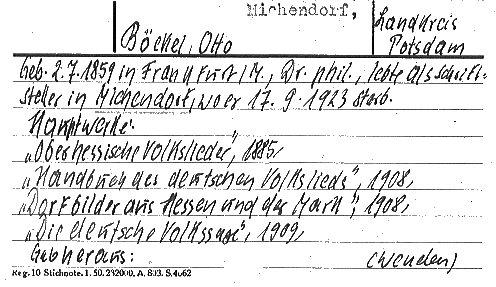 Michendorf, Landkreis
Potsdam
Böckel, Otto
Geb. 2.7.1859 in Frankfurt/M., Dr. phil., lebte als Schrift-
steller in Michendorf, wo er 17.9.1923 starb.
Hauptwerke:
„Oberhessische Volkslieder", 1885,
„Handbuch des deutschen Volkslieds", 1908,
„Dorfbilder aus Hessen und der Mark", 1908,
„Die deutsche Volkssage", 1909,
Gab heraus: (wenden)
Reg. 10 Stichnote. 1. 50. 232000. A. 803. S. 4062